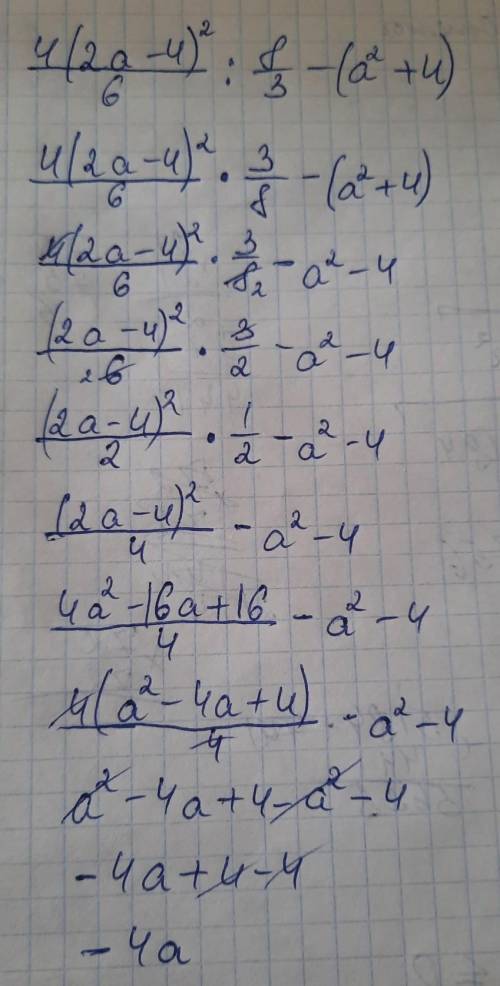 4(2a-4)²/6 : 8/3 - (a²+4)
4(2a-4)²/6 · 3/8 - (a²+4)
4(2a-4)²/6 · 3/8₂ - a² - 4
(2a-4)²/₂6 · 3/2 - a² - 4
(2a-4)²/2 · 1/2 - a² - 4
(2a-4)²/4 - a² - 4
4a²-16a+16/4 - a² - 4
4(a²-4a+4)/4 - a² - 4
a² - 4a + 4 - a² - 4
-4a + 4 - 4
-4a